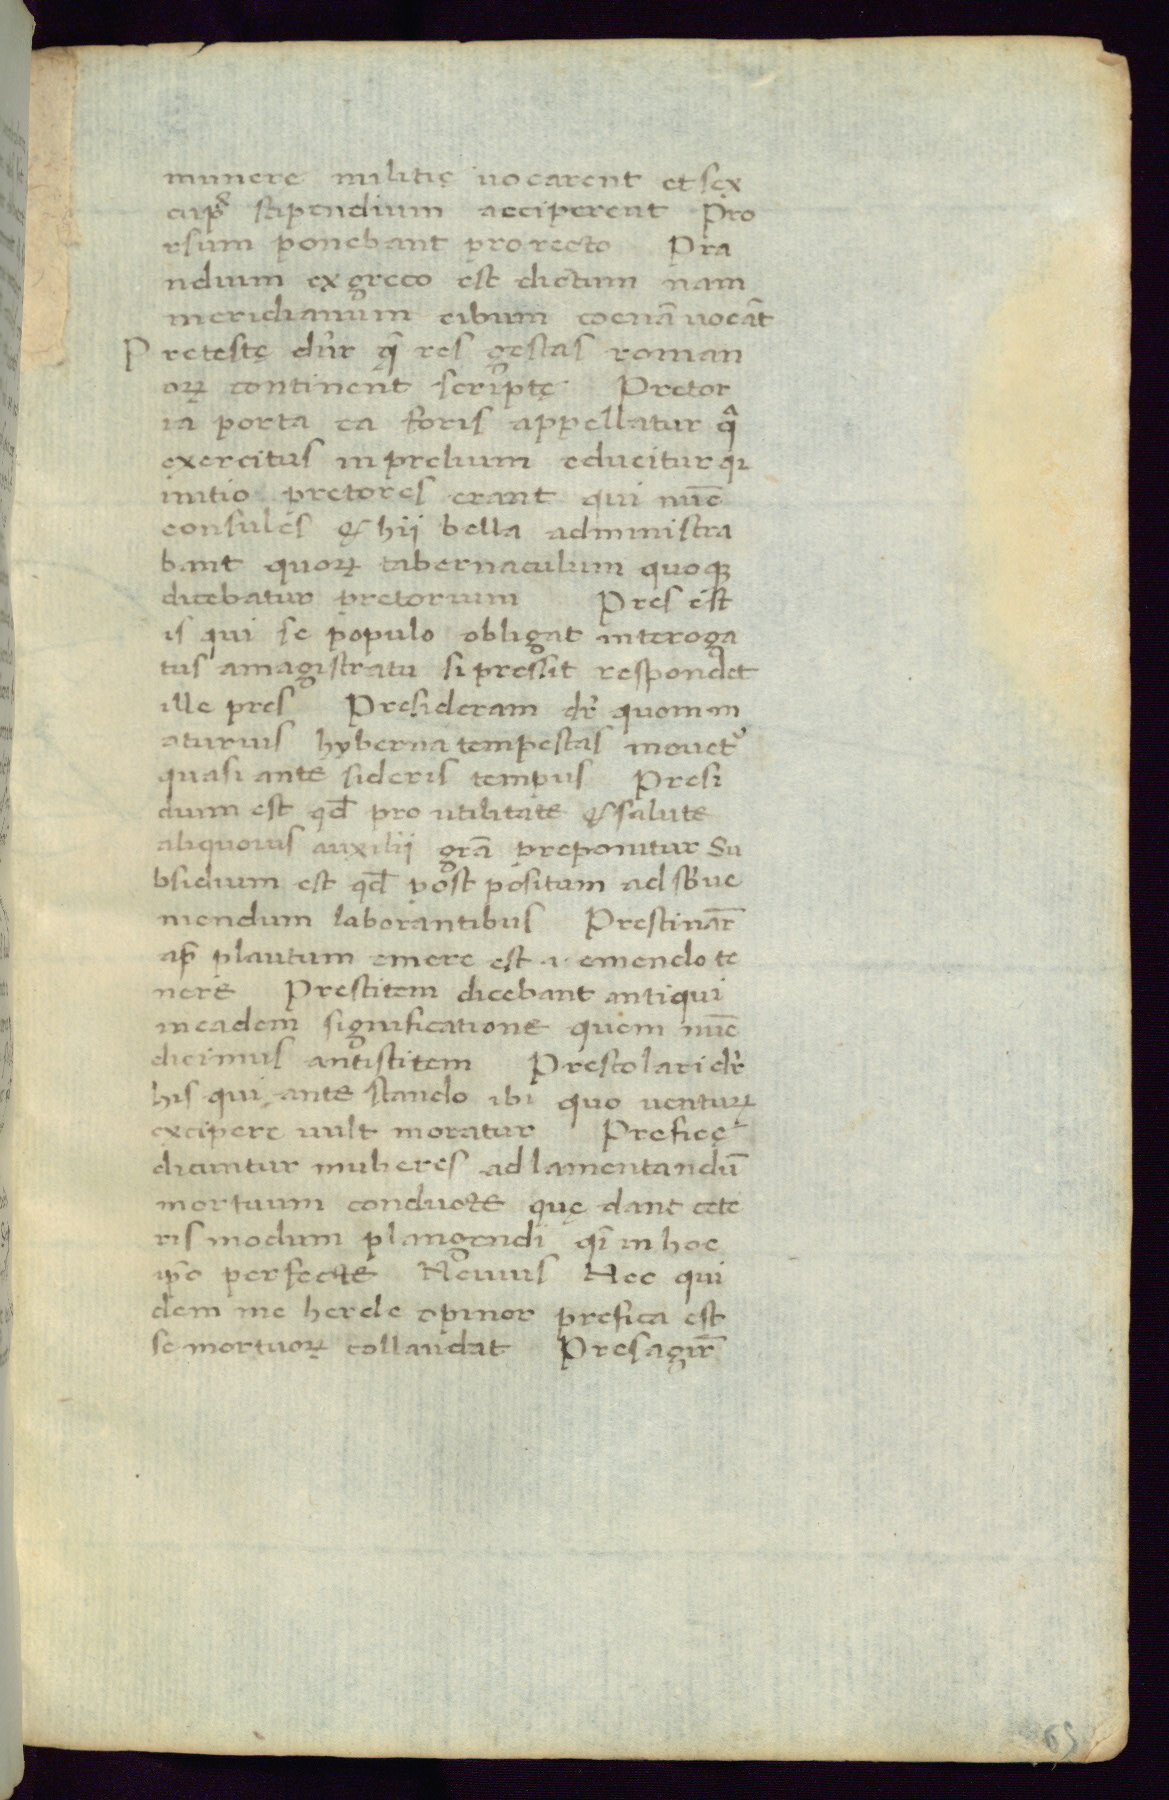 munere militię uocarent et sex
cup̄ stipendium acciperent Pro
rsum ponebant pro recto Pra
ndium ex greco est dictum nam
meridianum cibum coenā uocāt
Pretestę dn̄r q̄ res gestas roman
oꝝ continent scriptę Pretor
ia porta ea foris appellatur q̄
exercitus in prelium educitur qi
initio pretores erant qui nūc
consules & hij bella administra
bant quoꝝ tabernaculum quoqꝫ
dicebatur pretorium Pres est
is qui se populo obligat interoga
tus a magistratu si pres sit respondet
ille pres Presideram dr̄ quom m
aturius hyberna tempestas mouet᷒
quasi ante sideris tempus Presi
dium est qd̄ pro utilitate & salute
aliquouis auxilij grā preponitur Su
bsidium est qd̄ post positum ad sb̄ue
niendum laborantibus Prestinar̄
ap̄ plautum emere est i. emendo te
nere Prestitem dicebant antiqui
in eadem significatione quem nūc
dicimus antistitem Prestolari dr̄
his qui ante stando ibi quo uentuꝝ
excipere uult moratur Preficę
dicuntur mulieres ad lamentandū
mortuum conducte quę dant cete
ris modum plangendi qi in hoc
ip̄o perfecte Neuius Nec qui
dem me hercle opinor prefica est
se mortuoꝝ collaudat Presagir̄
65